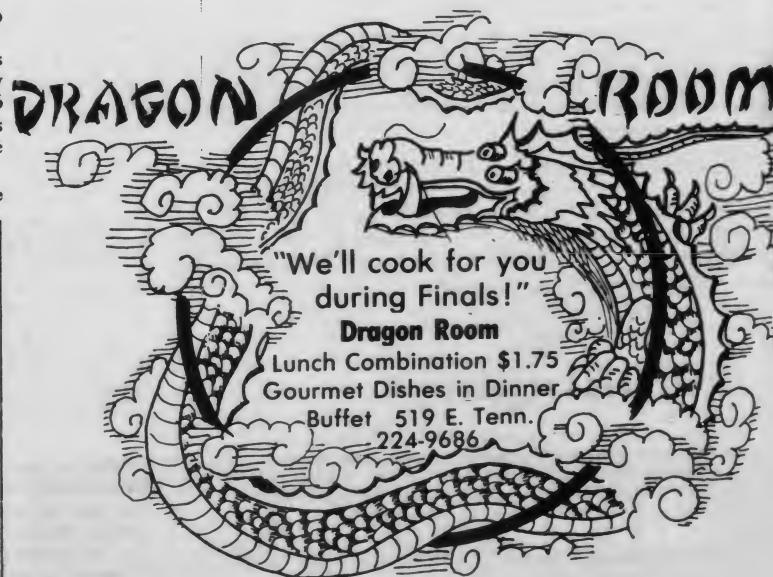 DRAGON ROOM
"We'll cook for you
during Finals!"
Dragon Room
Lunch Combination $1.75
Gourmet Dishes in Dinner
Buffet 519 E. Tenn.
224-9686